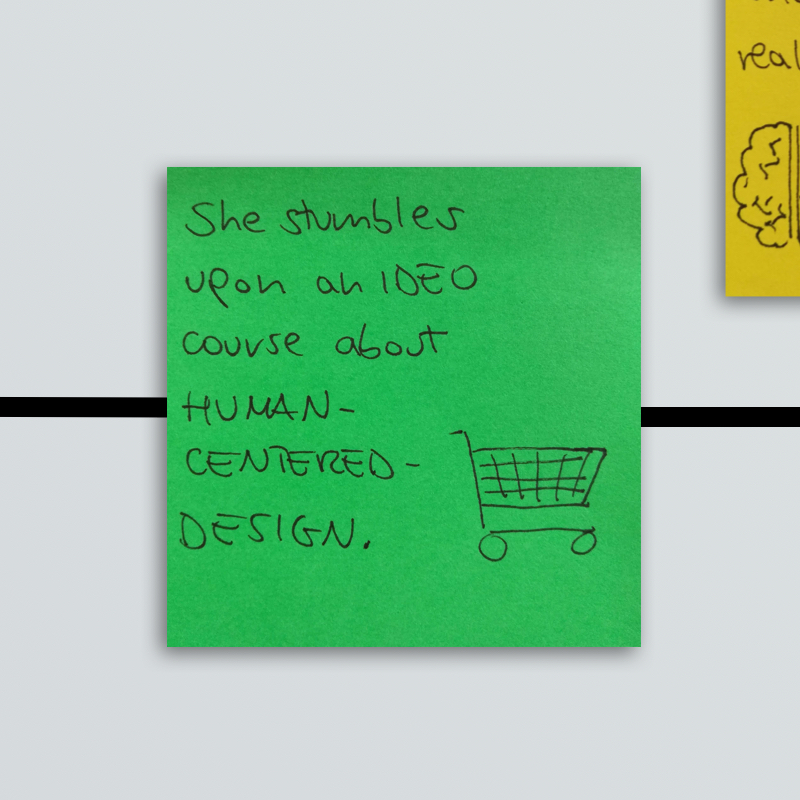 She stumbles
upon an IDEO
course about
HUMAN-
CENTERED-
DESIGN.